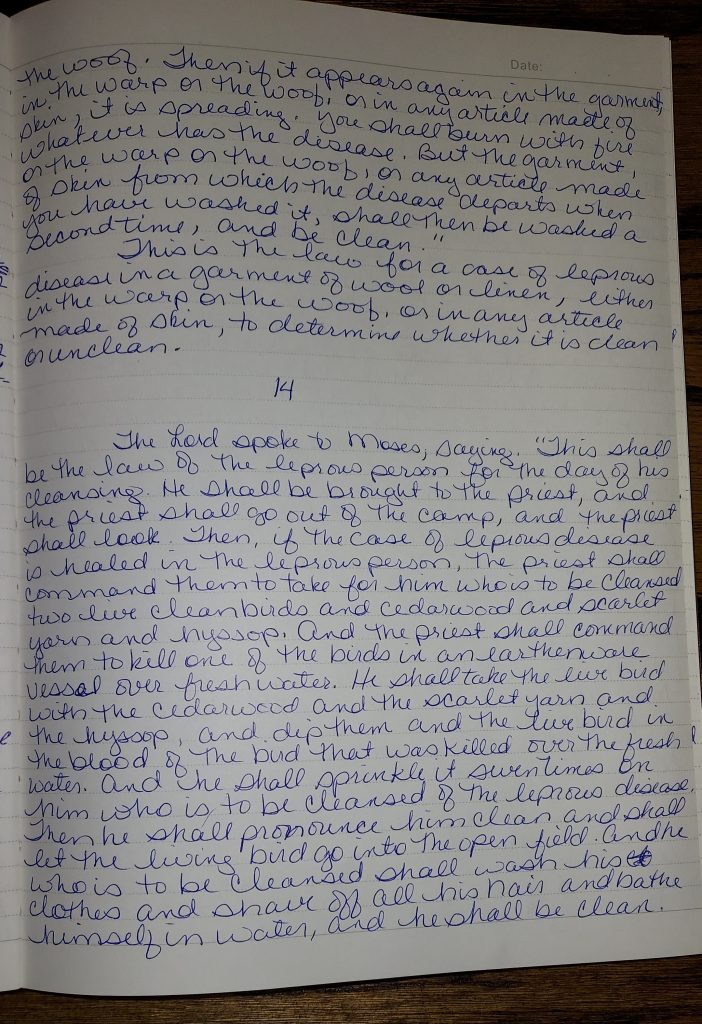 Date:
the woof. Then if it appears again in the garment,
in the warp or the woof, or in any article made of
skin, it is spreading. You shall burn with fire
whatever has the disease. But the garment,
or the warp or the woof, or any article made
of skin from which the disease departs when
you have washed it, shall then be washed a
second time, and be clean."
This is the law for a case of leprous
disease in a garment of wool or linen, either
in the warp or the woof, or in any article
made of skin, to determine whether it is clean
or unclean.
14
The Lord spoke to Moses, saying. "This shall
be the law of the leprous person for the day of his
cleansing. He shall be brought to the priest, and
the priest shall go out of the camp, and the priest
shall look. Then, if the case of leprous disease
is healed in the leprous person, the priest shall
command them to take for him who is to be cleansed
two live clean birds and cedarwood and scarlet
yarn and hyssop. And the priest shall command
them to kill one of the birds in an earthenware
vessel over fresh water. He shall take the live bird
with the cedarwood and the scarlet yarn and
the hyssop, and dip them and the live bird in
the blood of the bird that was killed over the fresh
water. And he shall sprinkle it seven times on
him who is to be cleansed of the leprous disease.
Then he shall pronounce him clean and shall
let the living bird go into the open field. And he
who is to be cleansed shall wash his
clothes and shave off all his hair and bathe
himself in water, and he shall be clean.